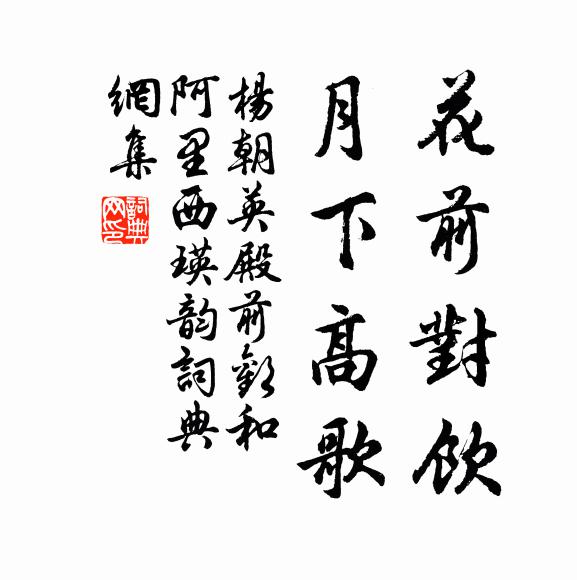 花前對飲
月下高歌
楊朝英殿前歡和
阿里西瑛韵詞典
網集
詞典網印